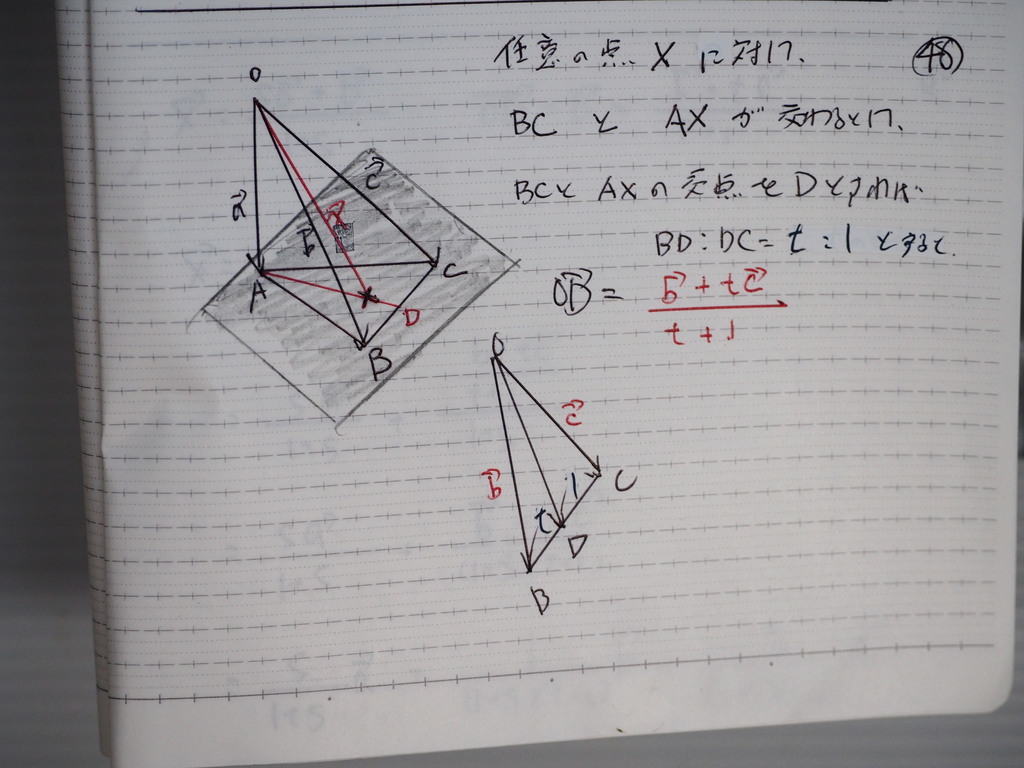 任意の点 X に対し、
㊽
BC と AX が 交わるとし、
BCと AXの 交点を Dとすれば
BD : DC = t : 1 とすると、
OB→ = (b→ + tc→) / (t + 1)
O
a→
b→
x→
c→
A
X
C
D
B
O
c→
b→
1
C
t
D
B